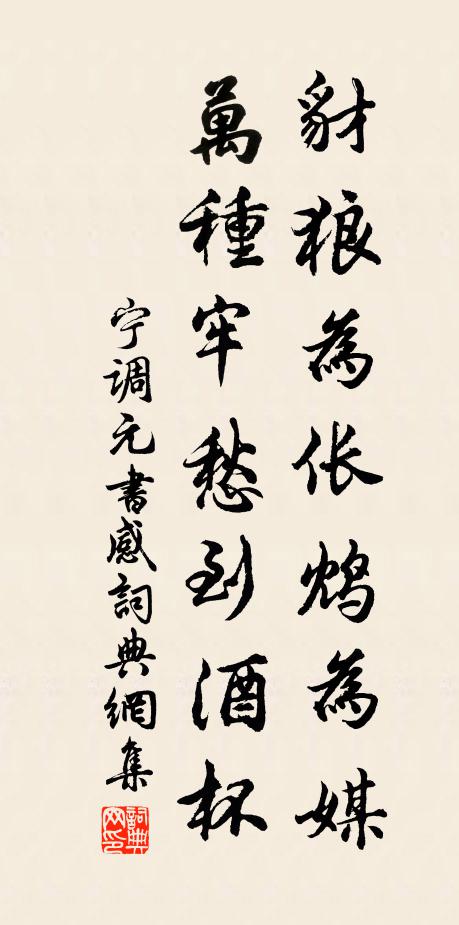 豺狼為伥鴆為媒
萬種牢愁到酒杯
宁调元書感詞典網集
詞典网印